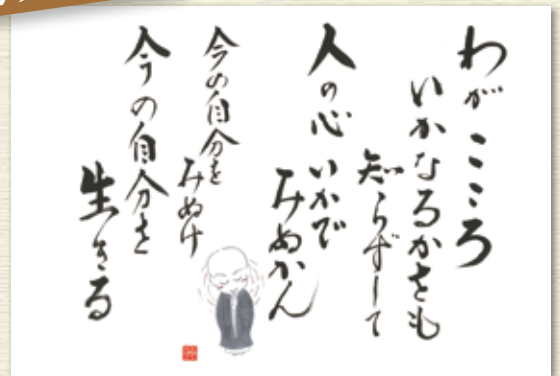 わがこころ
いかなるかをも
知らずして
人の心
いかで
みぬかん
今の自分を
みぬけ
今の自分を
生きる